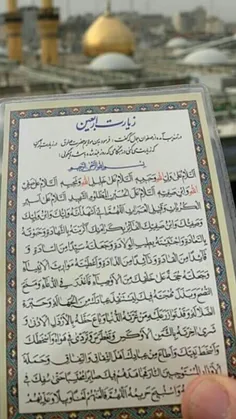 زیارت اربعین
از صفوان جمال که گفت فرمود به من مولایم حضرت صادق در زیارت اربعین
که زیارت می کنی در هنگامی که روز بلند شده باشد و میگوئی
بسم الله الرحمن الرحیم
اَلسَّلامُ عَلی وَلِیِّ اللهِ وَحَبیبِهِ اَلسَّلامُ عَلی خَلیلِ اللهِ وَنَجیبِهِ اَلسَّلامُ عَلی صَفِیِّ
اللهِ وَابْنِ صَفِیِّهِ اَلسَّلامُ عَلَی الْحُسَیْنِ الْمَظْلُومِ الشَّهیدِ اَلسَّلامُ عَلی اَسیرِ
الْکُرُباتِ وَقَتیلِ الْعَبَراتِ اَللّهُمَّ اِنّی اَشْهَدُ اَنَّهُ وَلِیُّکَ وَابْنُ وَلِیِّکَ
وَصَفِیُّکَ وَابْنُ صَفِیِّکَ الْفائِزُ بِکَرامَتِکَ اَکْرَمْتَهُ
بِالشَّهادَةِ وَحَبَوْتَهُ بِالسَّعادَةِ وَاجْتَبَیْتَهُ بِطیبِ الْوِلادَةِ وَجَعَلْتَهُ سَیِّداً مِنَ السّادَةِ وَ
قائِداً مِنَ الْقادَةِ وَذائِداً مِنَ الْذادَةِ وَاَعْطَیْتَهُ مَواریثَ الاَنْبِیاءِ
وَجَعَلْتَهُ حُجَّةً عَلی خَلْقِکَ مِنَ الاَوْصِیاءِ فَاَعْذَرَ فِی الدُّعاءِ وَمَنَحَ
النُّصْحَ وَبَذَلَ مُهْجَتَهُ فیکَ لِیَسْتَنْقِذَ عِبادَکَ مِنَ الْجَهالَةِ وَحَیْرَةِ
الضَّلالَةِ وَقَدْ تَوازَرَ عَلَیْهِ مَنْ غَرَّتْهُ الدُّنْیا وَباعَ حَظَّهُ بِالاَرْذَلِ الاَدْنی وَ
شَری اخِرَتَهُ بِالثَّمَنِ الاَوْکَسِ وَتَغَطْرَسَ وَتَرَدّی فی هَواهُ وَاَسْخَطَکَ
وَاَسْخَطَ نَبِیَّکَ وَاَطاعَ مِنْ عِبادِکَ اَهْلَ الشِّقاقِ وَالنِّفاقِ وَحَمَلَةَ
الاَوْزارِ الْمُسْتَوْجِبینَ النّارَ فَجاهَدَهُمْ فیکَ صابِراً مُحْتَسِباً حَتّی سُفِکَ فی
وَاسْتُبیحَ حَریمُهُ اَللّهُمَّ فَالْعَنْهُمْ لَعْناً